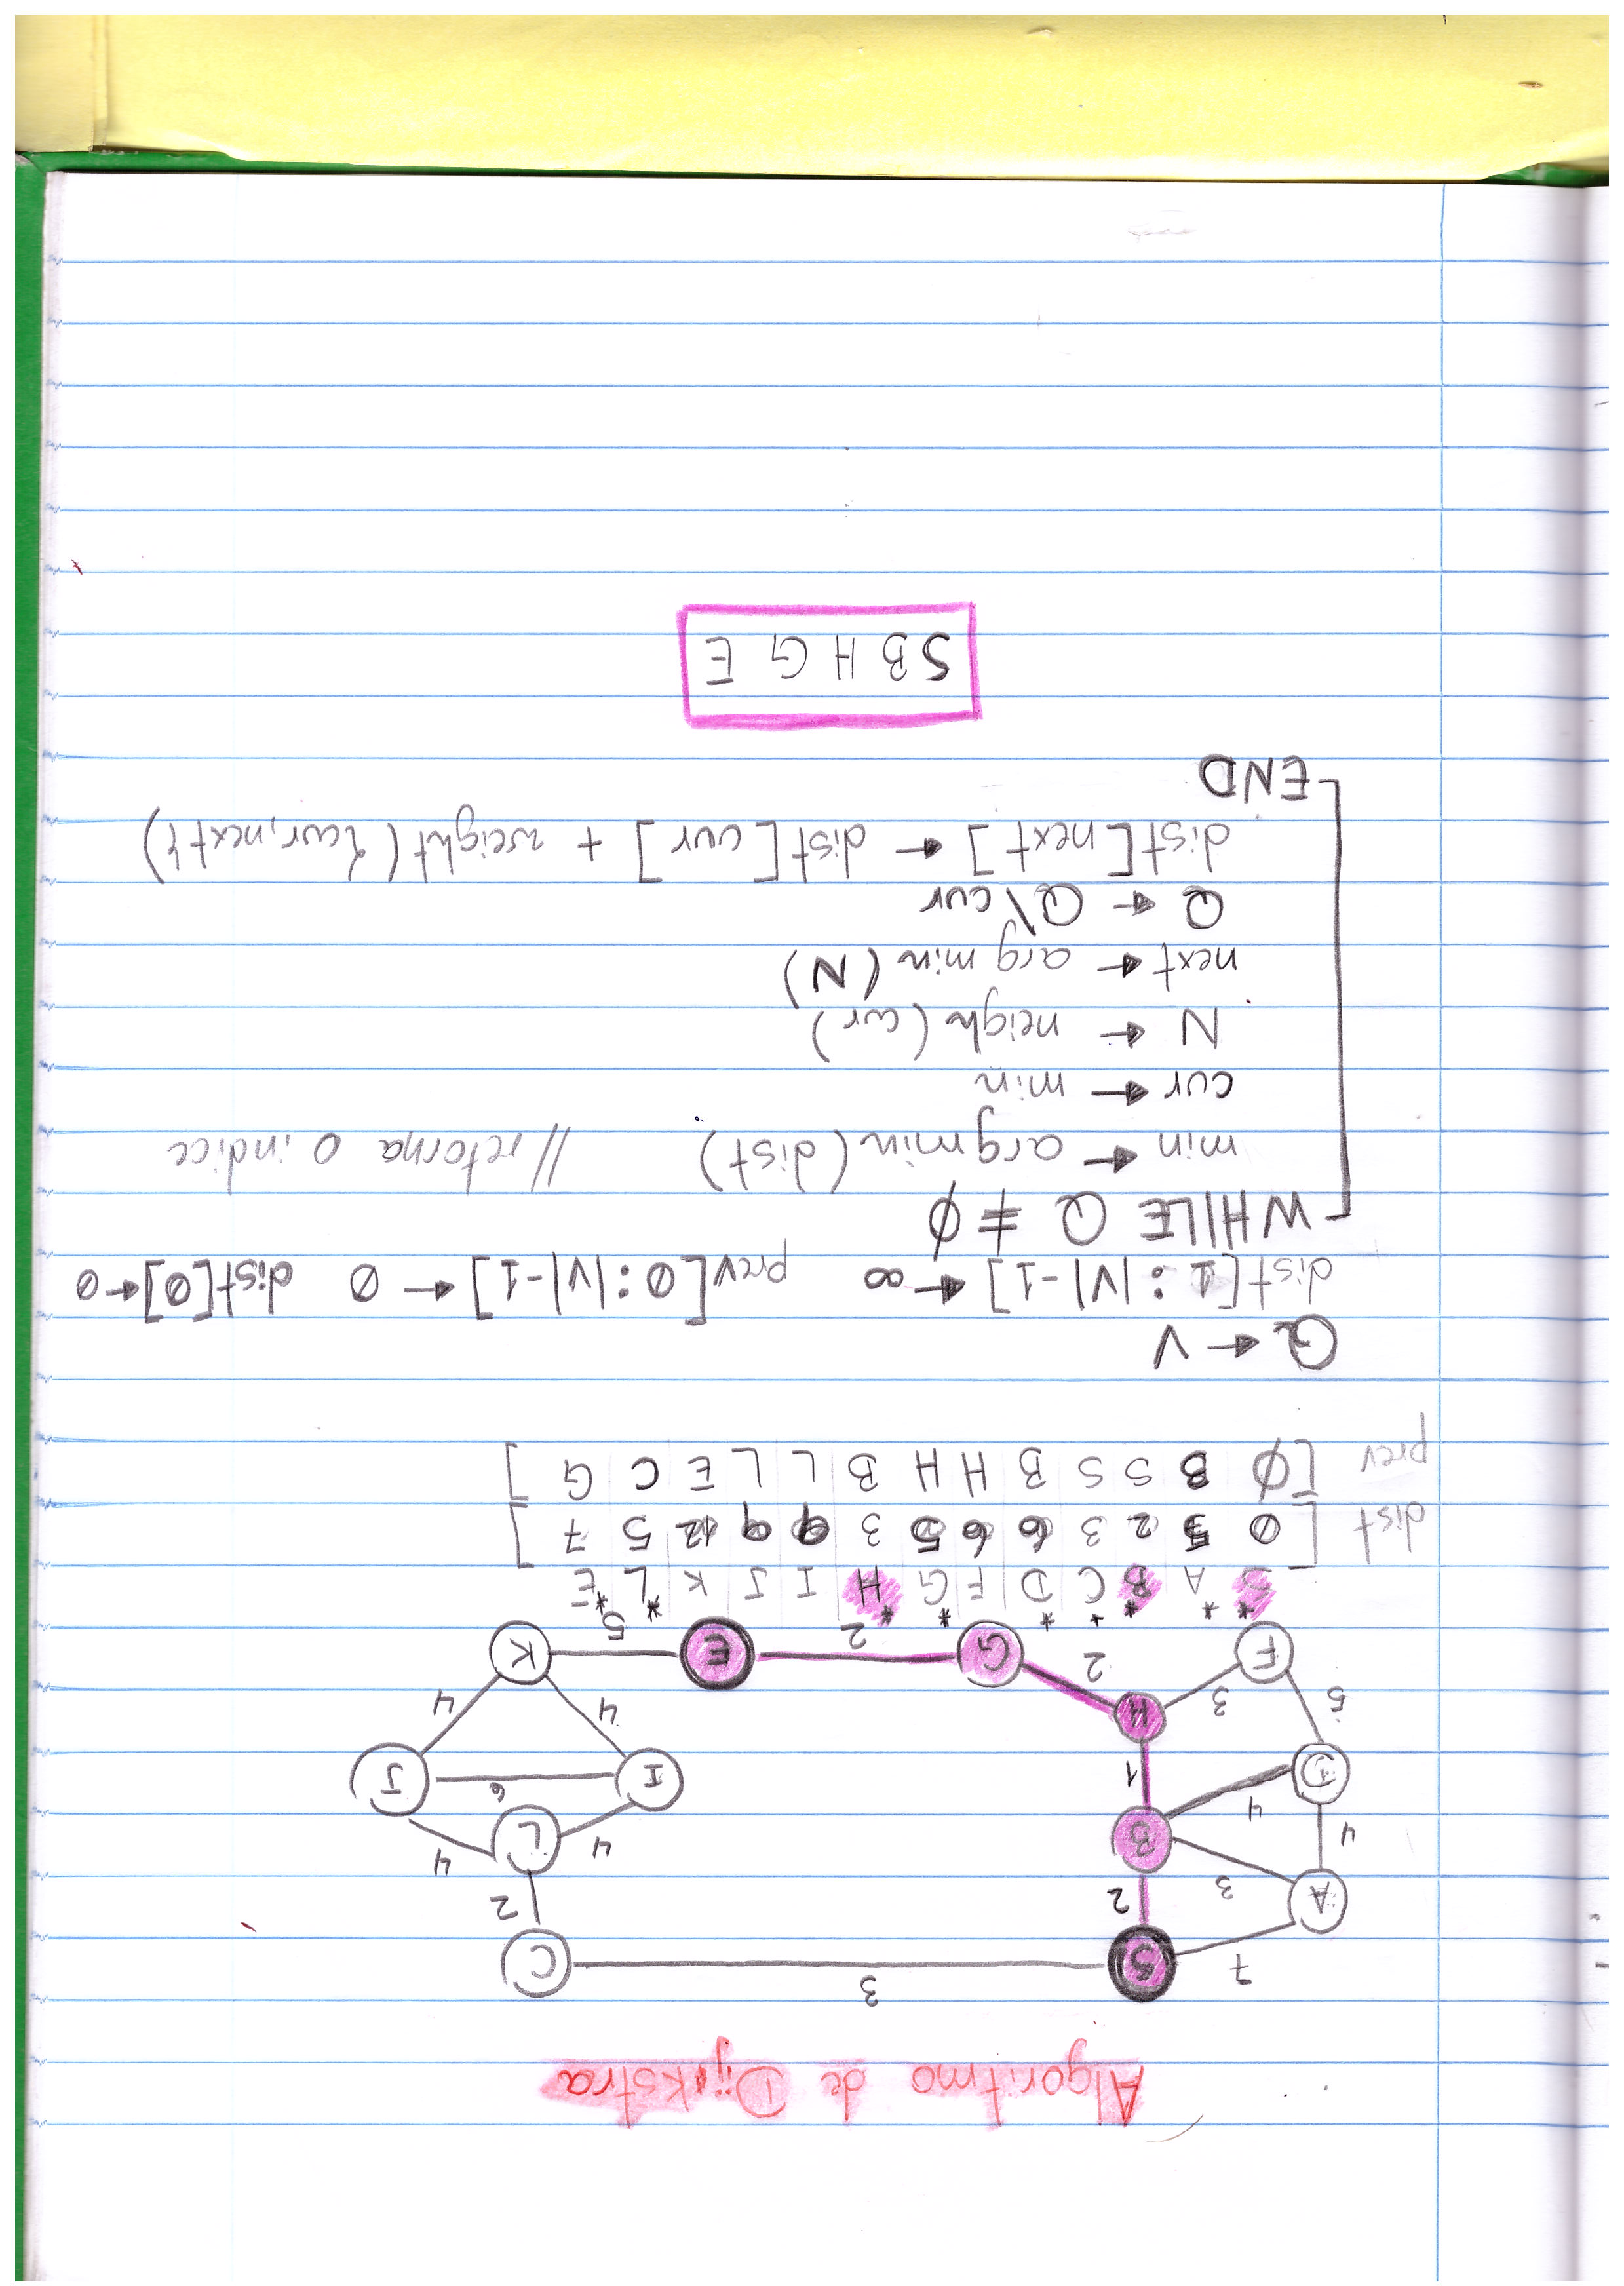 Algoritmo de Dijkstra
7 S 3 C
A 3 2 2
4 4 B 4 L 4
D 1 I 6 J
5 3 H 4 4
F 2 G 2 E 5 K
S* A* B* C* D* F G* H* I J K L* E*
dist [ 0 5 2 3 6 6 5 3 9 9 12 5 7 ]
prev [ ∅ B S S B H H B L L E C G ]
Q ← V
dist[1:|V|-1] ← ∞ prev[0:|V|-1] ← 0 dist[0] ← 0
WHILE Q ≠ ∅
min ← argmin(dist) // retorna o indice
cur ← min
N ← neigh(cur)
next ← arg min(N)
Q ← Q\cur
dist[next] ← dist[cur] + weight({cur,next})
END
S B H G E